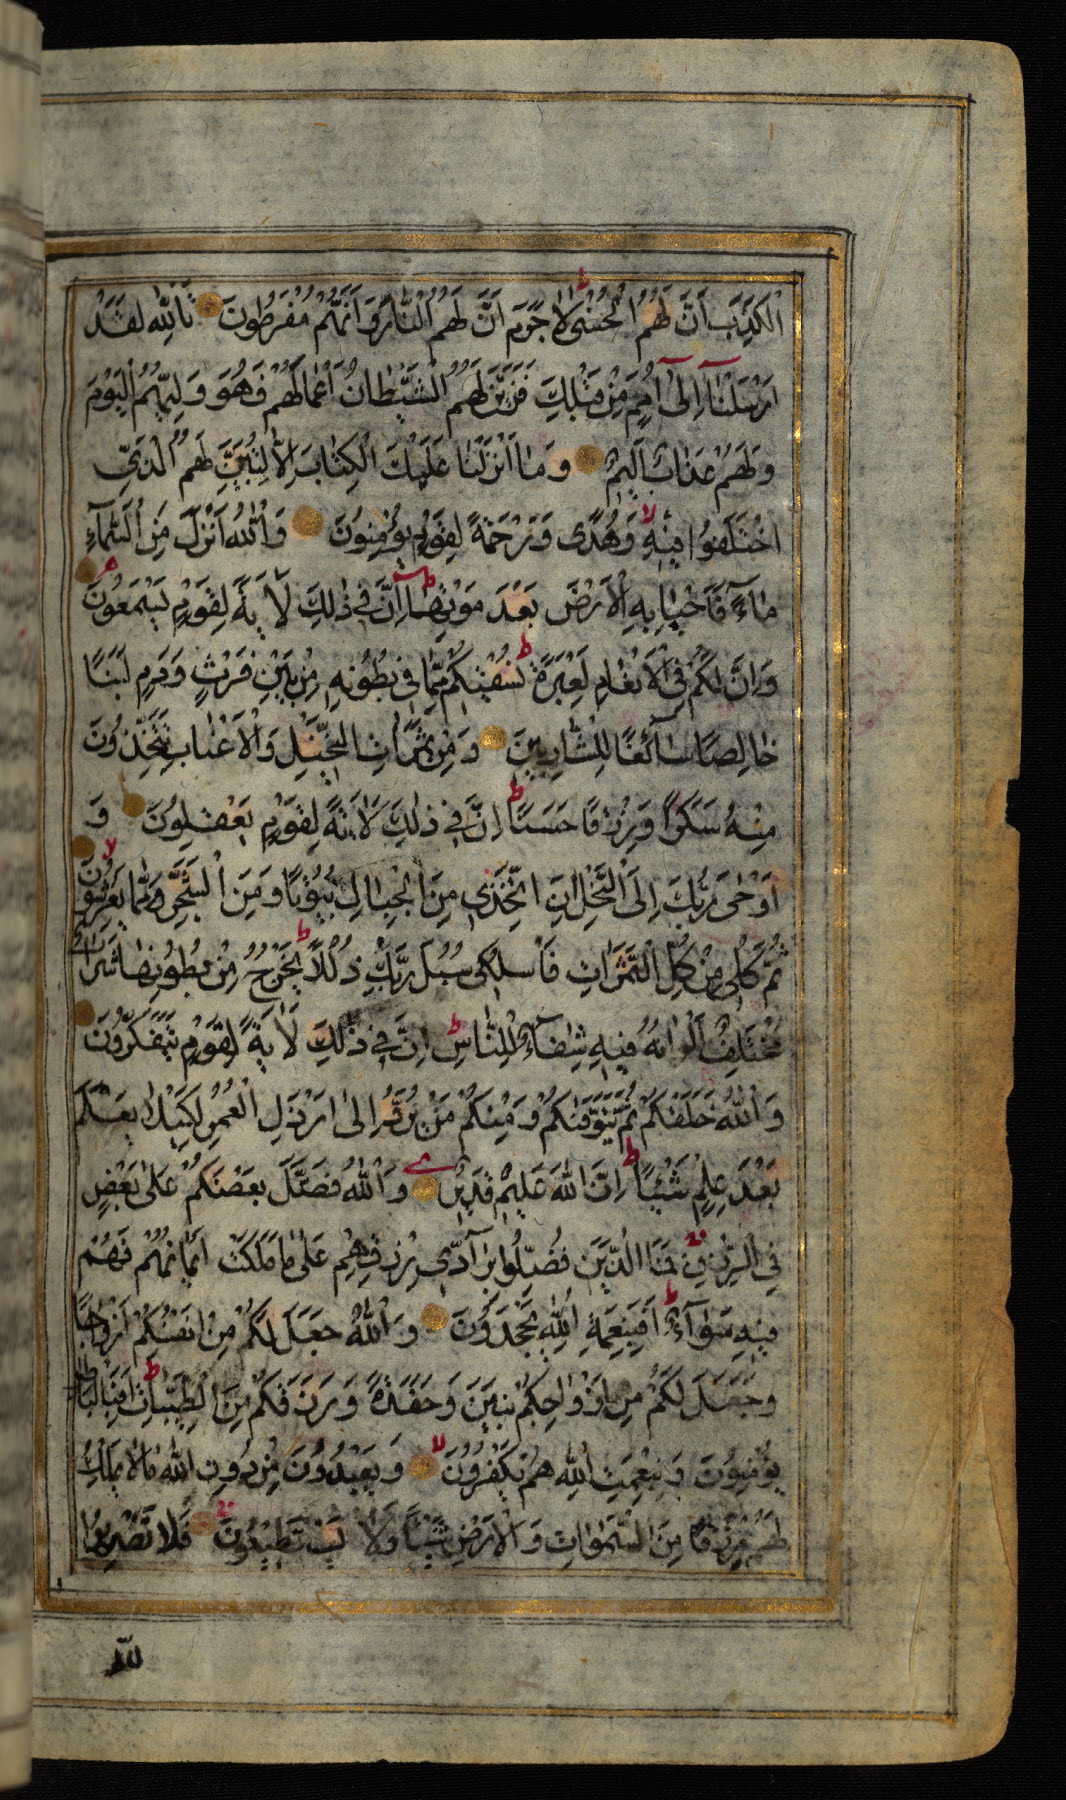 الْكَذِبَ اَنَّ لَهُمُ الْحُسْنٰى لَا جَرَمَ اَنَّ لَهُمُ النَّارَ وَاَنَّهُمْ مُفْرَطُونَ تَاللّٰهِ لَقَدْ
اَرْسَلْنَا اِلٰى اُمَمٍ مِنْ قَبْلِكَ فَزَيَّنَ لَهُمُ الشَّيْطَانُ اَعْمَالَهُمْ فَهُوَ وَلِيُّهُمُ الْيَوْمَ
وَلَهُمْ عَذَابٌ اَلِيمٌ وَمَا اَنْزَلْنَا عَلَيْكَ الْكِتَابَ اِلَّا لِتُبَيِّنَ لَهُمُ الَّذِي
اخْتَلَفُوا فِيهِ وَهُدًى وَرَحْمَةً لِقَوْمٍ يُؤْمِنُونَ وَاللّٰهُ اَنْزَلَ مِنَ السَّمَآءِ
مَآءً فَاَحْيَا بِهِ الْاَرْضَ بَعْدَ مَوْتِهَا اِنَّ فِي ذٰلِكَ لَاٰيَةً لِقَوْمٍ يَسْمَعُونَ
وَاِنَّ لَكُمْ فِي الْاَنْعَامِ لَعِبْرَةً نُسْقِيكُمْ مِمَّا فِي بُطُونِهِ مِنْ بَيْنِ فَرْثٍ وَدَمٍ لَبَنًا
خَالِصًا سَآئِغًا لِلشَّارِبِينَ وَمِنْ ثَمَرَاتِ النَّخِيلِ وَالْاَعْنَابِ تَتَّخِذُونَ
مِنْهُ سَكَرًا وَرِزْقًا حَسَنًا اِنَّ فِي ذٰلِكَ لَاٰيَةً لِقَوْمٍ يَعْقِلُونَ وَ
اَوْحٰى رَبُّكَ اِلَى النَّحْلِ اَنِ اتَّخِذِي مِنَ الْجِبَالِ بُيُوتًا وَمِنَ الشَّجَرِ وَمِمَّا يَعْرِشُونَ
ثُمَّ كُلِي مِنْ كُلِّ الثَّمَرَاتِ فَاسْلُكِي سُبُلَ رَبِّكِ ذُلُلًا يَخْرُجُ مِنْ بُطُونِهَا شَرَابٌ
مُخْتَلِفٌ اَلْوَانُهُ فِيهِ شِفَآءٌ لِلنَّاسِ اِنَّ فِي ذٰلِكَ لَاٰيَةً لِقَوْمٍ يَتَفَكَّرُونَ
وَاللّٰهُ خَلَقَكُمْ ثُمَّ يَتَوَفّٰىكُمْ وَمِنْكُمْ مَنْ يُرَدُّ اِلٰى اَرْذَلِ الْعُمُرِ لِكَيْلَا يَعْلَمَ
بَعْدَ عِلْمٍ شَيْئًا اِنَّ اللّٰهَ عَلِيمٌ قَدِيرٌ وَاللّٰهُ فَضَّلَ بَعْضَكُمْ عَلٰى بَعْضٍ
فِي الرِّزْقِ فَمَا الَّذِينَ فُضِّلُوا بِرَآدِّي رِزْقِهِمْ عَلٰى مَا مَلَكَتْ اَيْمَانُهُمْ فَهُمْ
فِيهِ سَوَآءٌ اَفَبِنِعْمَةِ اللّٰهِ يَجْحَدُونَ وَاللّٰهُ جَعَلَ لَكُمْ مِنْ اَنْفُسِكُمْ اَزْوَاجًا
وَجَعَلَ لَكُمْ مِنْ اَزْوَاجِكُمْ بَنِينَ وَحَفَدَةً وَرَزَقَكُمْ مِنَ الطَّيِّبَاتِ اَفَبِالْبَاطِلِ
يُؤْمِنُونَ وَبِنِعْمَتِ اللّٰهِ هُمْ يَكْفُرُونَ وَيَعْبُدُونَ مِنْ دُونِ اللّٰهِ مَا لَا يَمْلِكُ
لَهُمْ رِزْقًا مِنَ السَّمٰوَاتِ وَالْاَرْضِ شَيْئًا وَلَا يَسْتَطِيعُونَ فَلَا تَضْرِبُوا
للّٰه